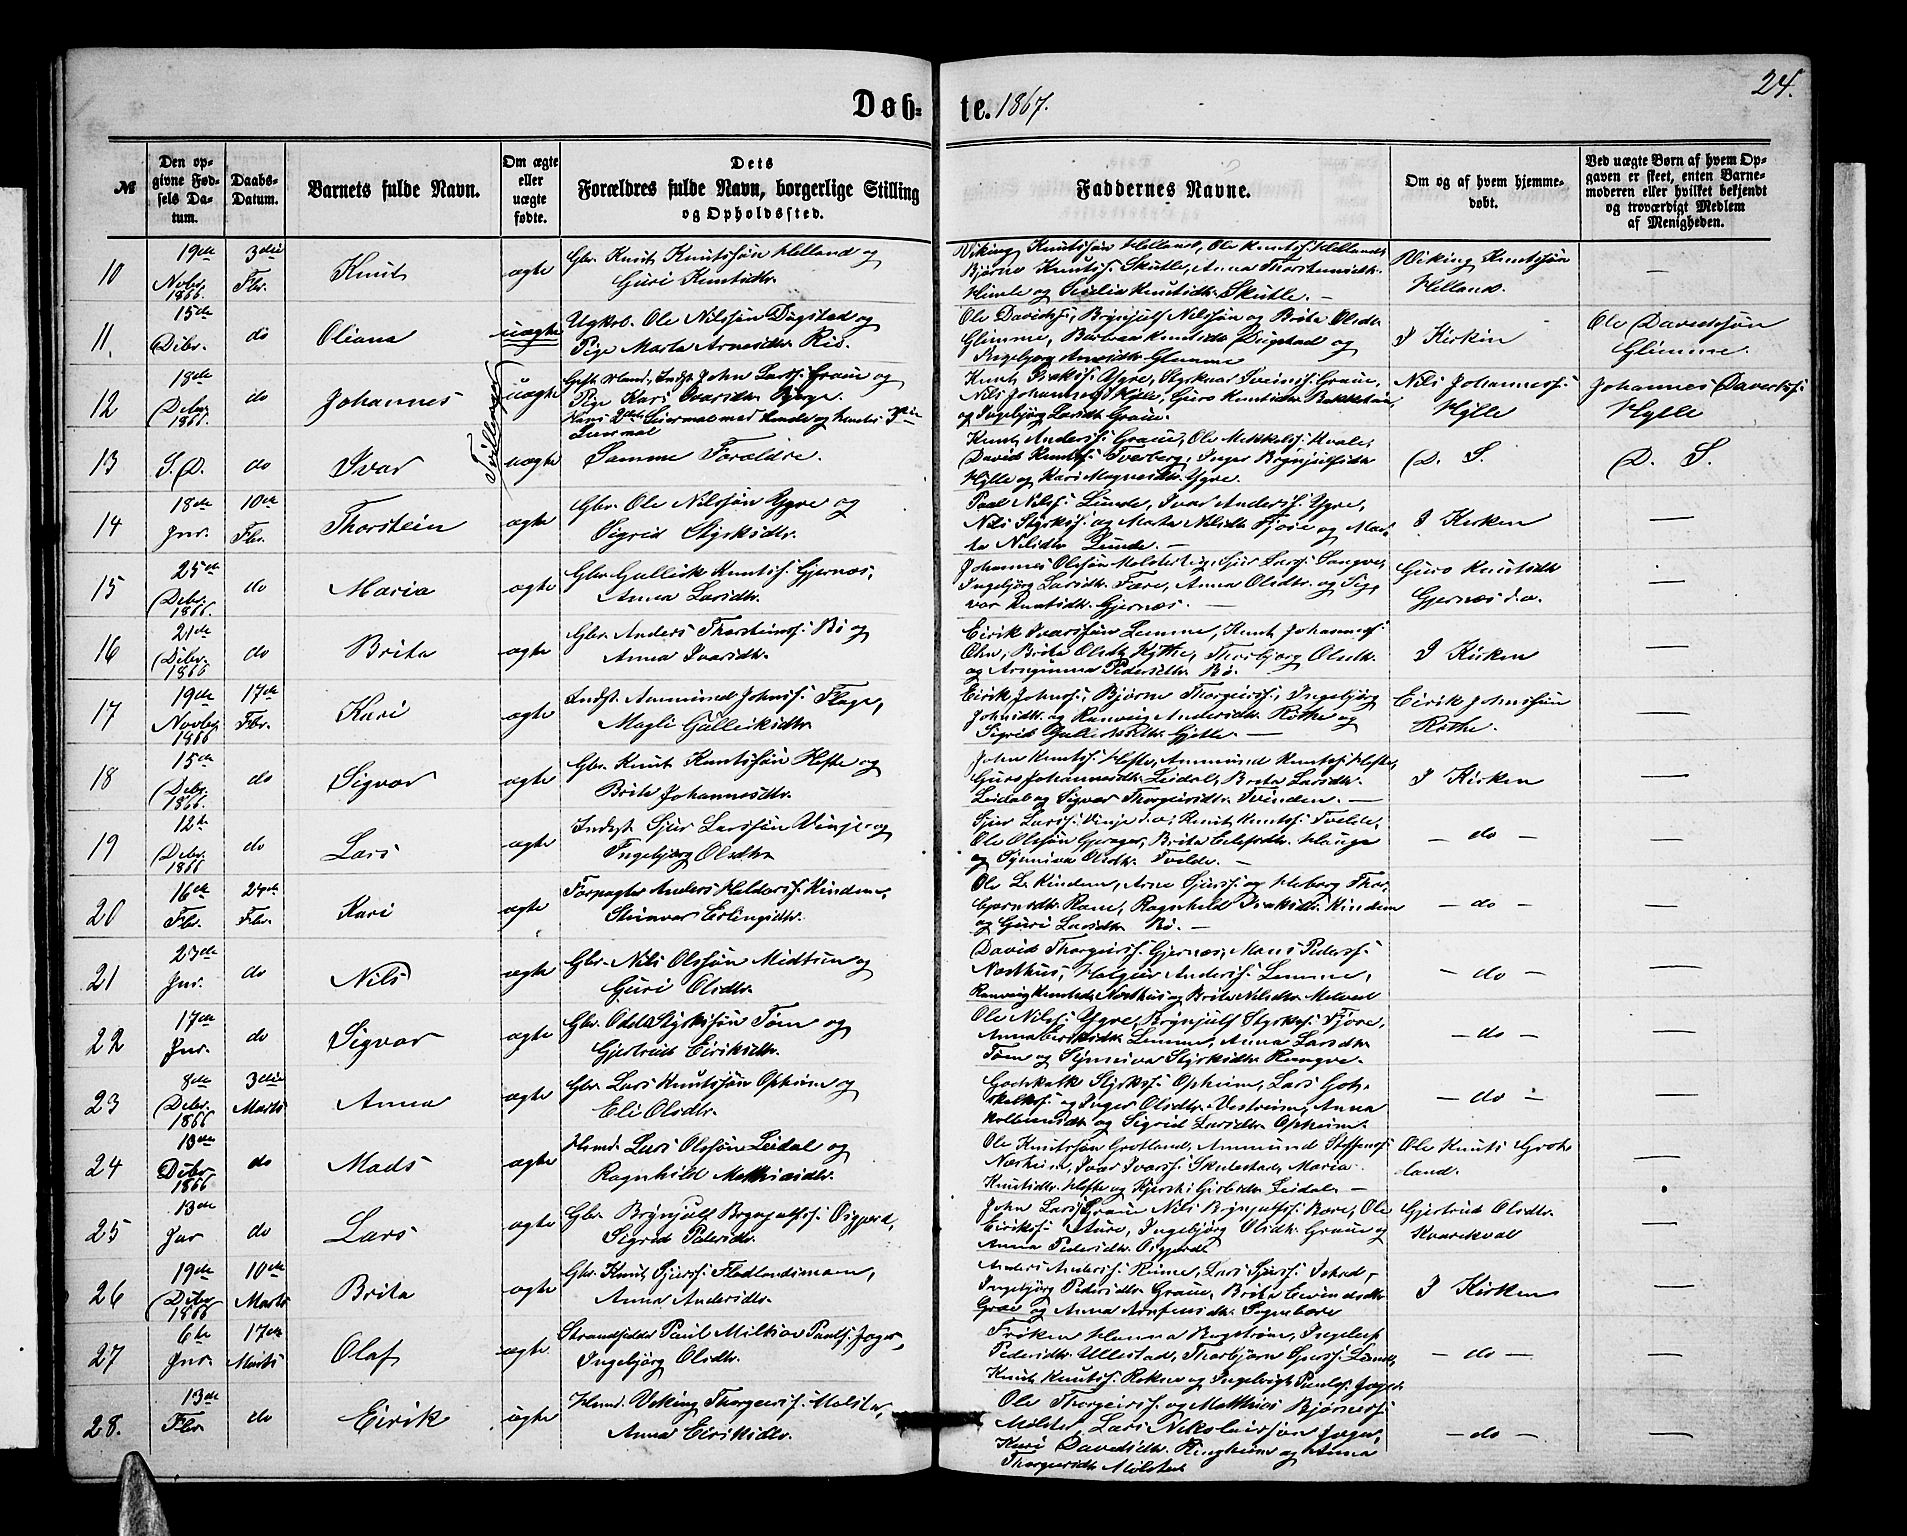 24.
Døb-te. 1867.
№ | Den opgivne Fødsels Datum. | Daabs-Datum. | Barnets fulde Navn. | Om ægte eller uægte fødte. | Dets Forældres fulde Navn, borgerlige Stilling og Opholdssted. | Faddernes Navne. | Om og af hvem hjemmedøbt. | Ved uægte Børn af hvem Opgaven er skeet, enten Barnemoderen eller hvilket bekjendt og troværdigt Medlem af Menigheden.
10 | 19de Novbr. 1866. | 3die Fbr. | Knut | ægte | Gbr. Knut Knutssøn Helland og
Guri Knutsdtr. | Viking Knutssøn Helland, Ole Knuts. Helland,
Bjørne Knutss. Skutle, Anna Thorsteinsdtr.
Himle og Knutsdtr. Skutle. — | Viking Knutssøn
Helland. | —
11. | 15de Dcbr. | do | Oliana | uægte | Ugkrl. Ole Nilssøn Dugstad og
Pige Marta Arnesdtr. Rio. | Ole Davidss., Brynjulf Nilssøn og Brita Olsdtr.
Glimme, Barbra Knutsdtr. Dugstad og
Ingebjørg Glimme | I Kirken | Ole Davidssøn
Glimme.
12 | 18de Debr. 1866. | do | Johannes | Tvillinger | uægte | John Larss. Graue og
Pige Kari Ivarsdtr.
Leiermal | Knut Ygre, Styrkaar Sveinss. Graue,
Nils Johanness. Hylle, Guro Knutsdtr.
og Ingebjørg Larsdtr. Graue. | Nils Johanness.
Hylle | Johannes Davidss.
Hylle
13 | S. D. | do | Ivar | uægte | Samme Forældre. | Knut Anderss. Graue, Ole Mikkelss. Kvale,
David Knutss. Tverberg, Inger Brynjulfsdtr.
Hylle og Kari Magnesdtr. Ygre. | D. S. | D. S.
14 | 18de Jnr. | 10de Fbr. | Thorstein | ægte | Gbr. Ole Nilssøn Ygre og
Sigrid Styrksdtr. | Paal Nilss. Lunde, Ivar Anderss. Ygre,
Nils Styrkss. og Marta Nilsdtr. Fjore og Mar-
ta Nilsdtr. Lunde. — | I Kirken | —
15 | 25de Debr. 1866. | do | Maria | ægte | Gbr. Gulleik Knutss. Gjernæs,
Anna Larsdtr. | Johannes Olssøn Molster, Sjur Larss.
Ingebjørg Larsdtr. Anna Olsdtr. og Sig-
var Knutsdtr. Gjernæs. — | Guro Knutsdtr.
Gjernæs d.æ. | —
16 | 21de Debr. 1866 | do | Brita | ægte | Gbr. Anders Thorsteinss. Bø og
Anna Ivarsdtr. | Eirik Ivarssøn Lemme, Knut Johanness.
Brita Olsdtr. Kytte, Thorbjørg Olsdtr.
og Arngunna Pedersdtr. Bø. | I Kirken | —
17 | 19de Novbr. 1866 | 17de Fbr. | Kari | ægte | Indst. Ammund Johnss. Flage,
Magli Gulleiksdtr. | Eirik Johnss., Bjørne Thorgeirss., Ingebjørg
Johnsdtr. og Ranveig Andersdtr. Røthe og
Sigrid Gulleiksdtr. Gjelle. — | Eirik Johnssøn
Røthe. | —
18 | 15de Debr. 1866. | do | Sigvor | ægte | Gbr. Knut Knutssøn Hefte og
Brita Johannesdtr. | John Knutss. Hefte, Ammund Knutss. Hefte,
Guro Johannesdtr. Leidal, Brita Larsdtr.
Leidal og Sigvor Thorgeirsdtr. Tvinden. — | I Kirken | —
19 | 12te Debr. 1866 | do | Lars | ægte | Indst. Sjur Larssøn Vinje og
Ingebjørg Olsdtr. | Sjur Larss. Vinje d.æ., Knut Knutss. Tvilde,
Ole Olssøn Gjerager, Brita Hauge
og Synniva Olsdtr. Tvilde. — | — do — | —
20 | 16de Fbr. | 24de Fbr. | Kari | ægte | Forpagter Anders Haldorss. Kindem,
Steinvor Erlingsdtr. | Ole L. Kindem, Arne Sjurss. og Heborg Thor-
bjørnsdtr. Rene, Ragnhild Isaksdtr. Kindem
og Guri Larsdtr. Bø. — | — do — | —
21 | 23de Jnr. | do | Nils | ægte | Gbr. Nils Olssøn Midtun og
Guri Olsdtr. | David Thorgeirss. Gjernæs, Mons Pederss.
Nordhus, Holgeir Anderss. Lemme,
Ranveig Knutsdtr. Nordhus og Brita Nilsdtr. Melved | — do — | —
22 | 17de Jnr. | do | Sigvor | ægte | Gbr. Odd Styrkssøn Tøn og
Gjertrud Eiriksdtr. | Ole Nilss. Ygre, Brynjulf Styrkss. Fjore,
Anna Eiriksdtr. Lemme, Anna Larsdtr.
Tøn og Synniva Styrksdtr. Rongve. | — do — | —
23 | 8de Debr. 1866 | 3die Marts | Anna | ægte | Gbr. Lars Knutssøn Opheim og
Eli Olsdtr. | Godskalk Styrkss. Opheim, Lars God-
skalkss. og Inger Olsdtr. Vestreim, Anna
Kolbeinsdtr. og Sigrid Larsdtr. Opheim. | — do — | —
24 | 13de Debr. 1866 | do | Mads | ægte | Hsmd. Lars Olssøn Leidal og
Ragnhild Mathiasdtr. | Ole Knutssøn Grotland, Ammund Steffenss.
Nærheim, Ivar Ivarss. Skulestad, Maria
Knutsdtr. Hefte og Kjersti Leidal. — | Ole Knuts. Grot-
land. | —
25 | 13de Jnr | do | Lars | ægte | Gbr. Brynjulf Brynjulfss.
Sigrid Pedersdtr. | John Larss. Graue, Nils Brynjulfss. Ole
Eirikss. Ingebjørg Olsdtr. Graue og
Anna Pedersdtr. | Gjertrud Olsdtr.
Kvarekval | —
26 | 19de Debr. 1866 | 10de Marts | Brita | ægte | Gbr. Knut Sjurss. Fladlandsmoen,
Anna Andersdtr. | Anders Anderss. Rinne, Lars Sjurss.
Ingebjørg Pedersdtr. Graue, Brita
Grae og Anna | I Kirken | —
27 | 6te Jnr. | 17de Marts | Olaf | ægte | Strandsidder Paul Miltzow Paulss. Jager,
Ingebjørg Olsdtr. | Frøken Hanna Bergstrøm, Ingeleif
Pedersdtr. Ullestad, Thorbjørn Sjurss. Lund,
Knut Knutss. Rokne og Ingebrigt Paulss. Jager | — do — | —
28. | 13de Fbr | do | Eirik | ægte | Hsmd. Viking Thorgeirss. Molster,
Anna Eiriksdtr. | Ole Thorgeirss. og Matthias Bjørness.
Molster, Lars Nikolaissøn Jager,
Kari Davidsdtr. Ringheim og Anna
Thorgeirsdtr. Molster | — do — | —